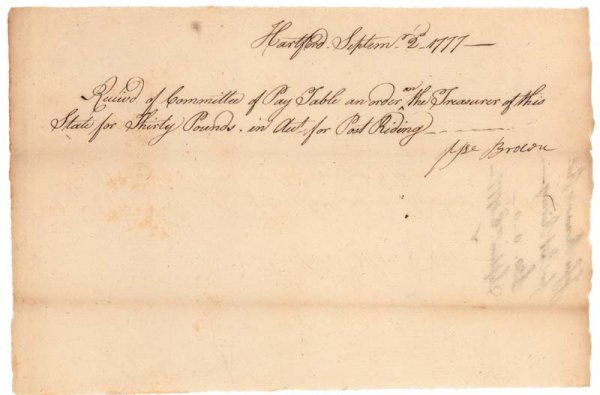 Hartford Septemr 2d 1777
Receivd of Committee of Pay Table an order on the Treasurer of this
State for Thirty Pounds in Act. for Post Riding
Brown